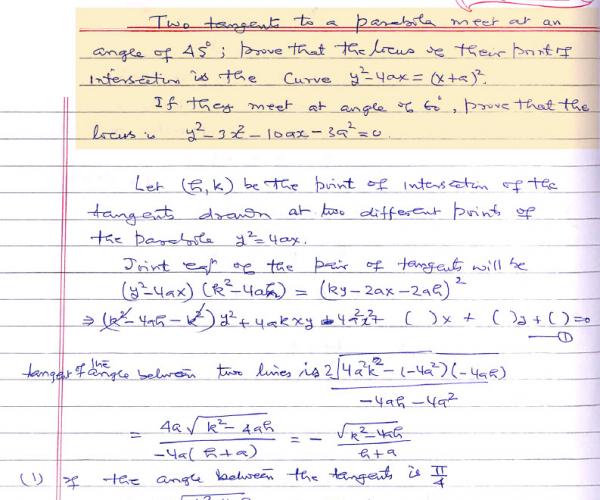 Two tangents to a parabola meet at an
angle of 45°; prove that the locus of their point of
intersection is the curve y²-4ax = (x+a)².
If they meet at angle of 60°, prove that the
locus is y²-3x²-10ax-3a²=0.
Let (h,k) be the point of intersection of the
tangents drawn at two different points of
the parabola y²=4ax.
Joint eqn of the pair of tangents will be
(y²-4ax) (k²-4ah) = (ky-2ax-2ah)²
⇒ (k²-4ah-k²)y² + 4akxy - 4a²x² + ( )x + ( )y + ( ) = 0
①
tangent of the angle between two lines is 2√4a²k²-(-4a²)(-4ah)
-4ah-4a²
= 4a√k²-4ah = - √k²-4ah
-4a(h+a) h+a
(1) If the angle between the tangents is π/4